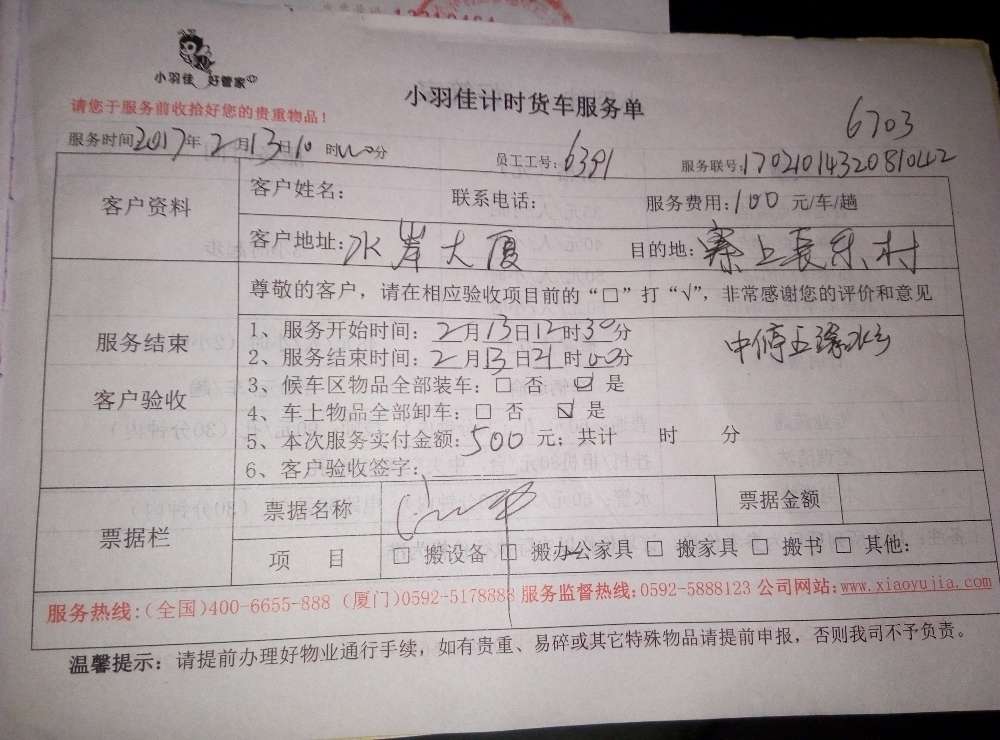 小羽佳 好管家
小羽佳计时货车服务单
请您于服务前收拾好您的贵重物品！
6703
服务时间2017年2月13日10时00分 员工工号:6391 服务联号:1702101432081042
客户资料
客户姓名: 联系电话: 服务费用:100元/车/趟
客户地址:水岸大厦 目的地:寨上長乐村
服务结束
客户验收
尊敬的客户，请在相应验收项目前的“□”打“√”，非常感谢您的评价和意见
1、服务开始时间：2月13日12时30分
2、服务结束时间：2月13日21时00分
中停五缘水乡
3、候车区物品全部装车：□ 否 ☑ 是
4、车上物品全部卸车：□ 否 ☑ 是
5、本次服务实付金额:500元；共计 时 分
6、客户验收签字:
票据栏
票据名称 票据金额
项 目 □ 搬设备 □ 搬办公家具 □ 搬家具 □ 搬书 □ 其他:
服务热线:(全国)400-6655-888 (厦门)0592-5178888 服务监督热线:0592-5888123 公司网站:www.xiaoyujia.com
温馨提示：请提前办理好物业通行手续，如有贵重、易碎或其它特殊物品请提前申报，否则我司不予负责。